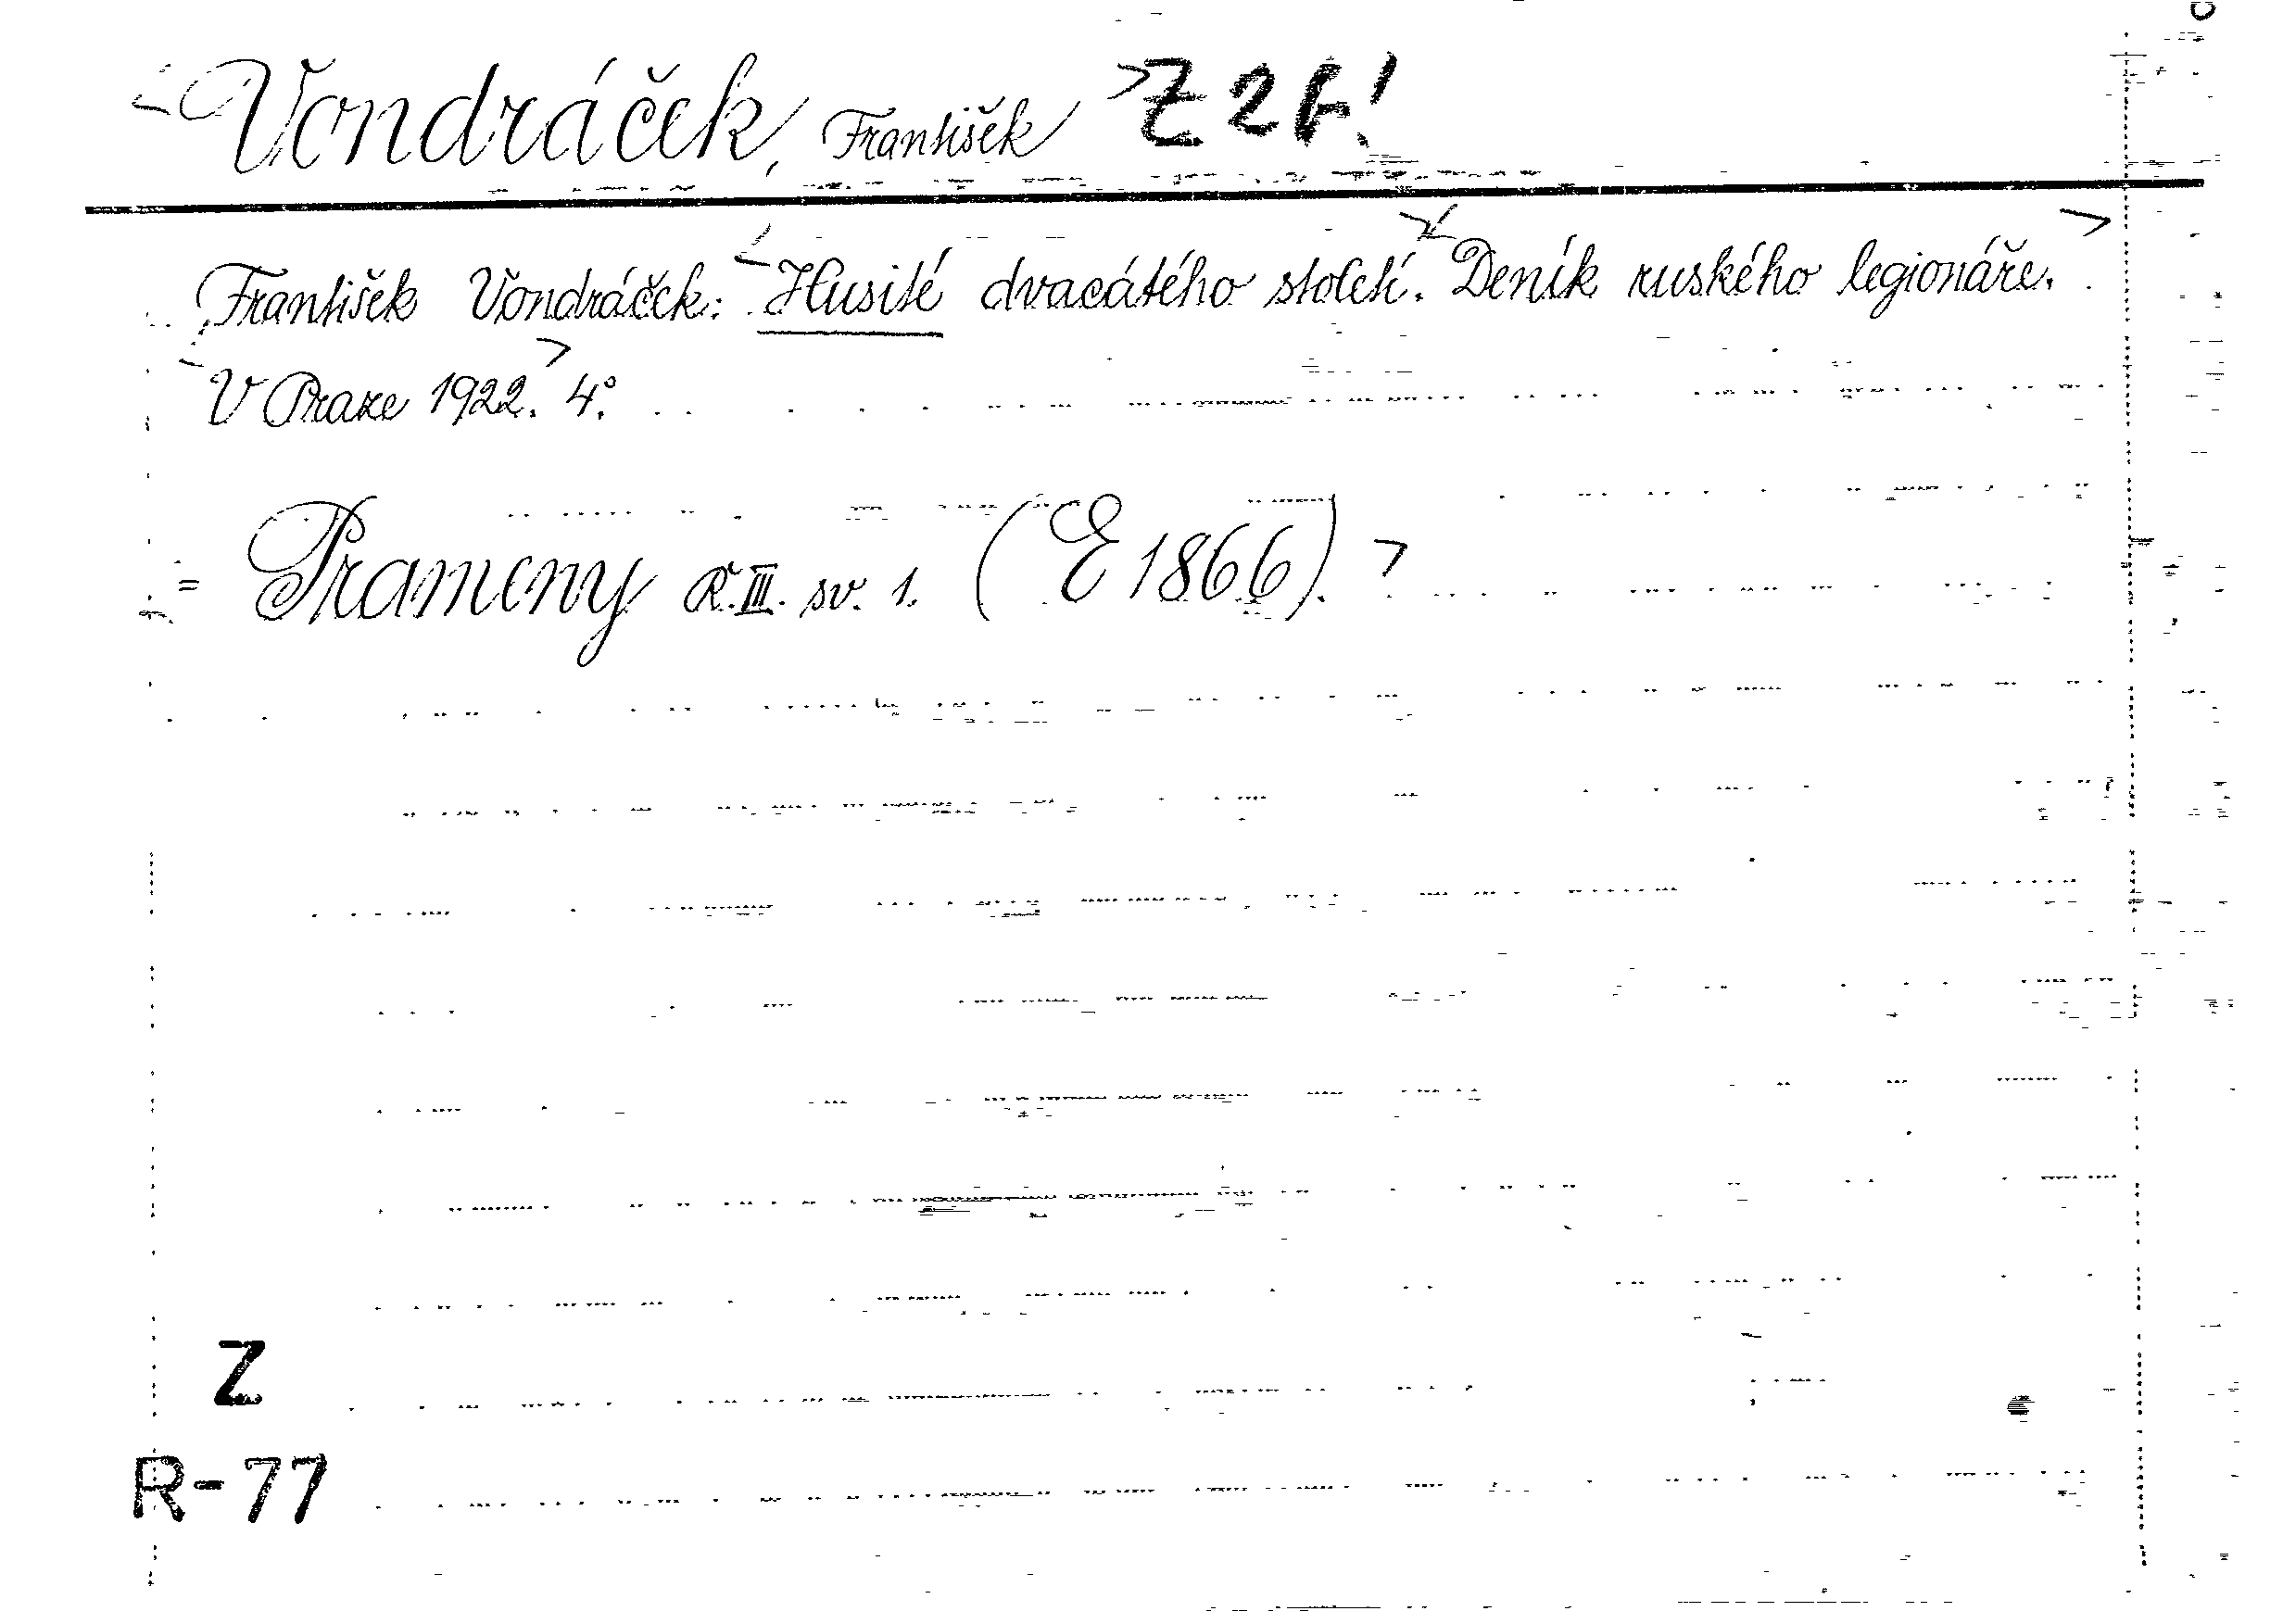 Vondráček, František Z 2 f.!
František Vondráček: Husité dvacátého století. Deník ruského legionáře.
V Praze 1922. 4°.
= Prameny Ř. III. sv. 1. (E 1866).
Z
R-77